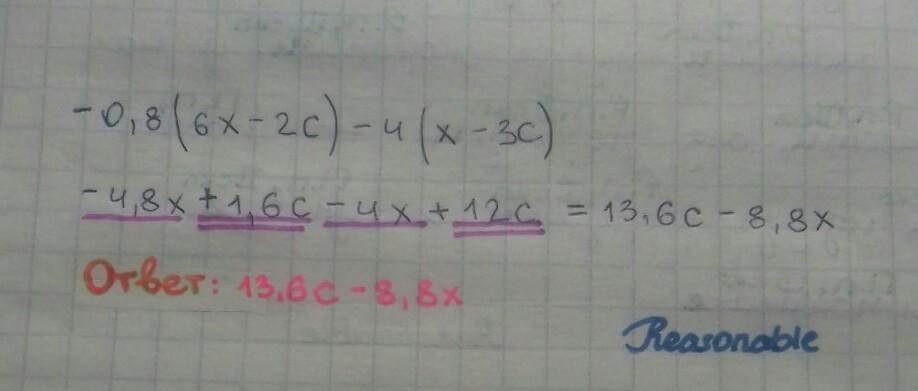 -0,8(6x-2c)-4(x-3c)
-4,8x+1,6c-4x+12c = 13,6c-8,8x
Ответ: 13,6c-8,8x
Reasonable